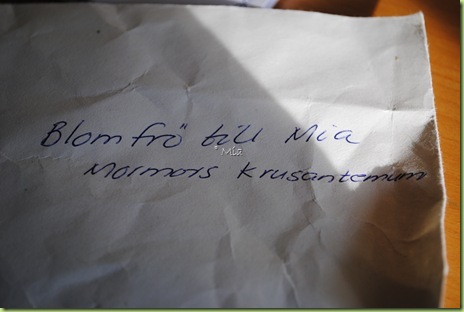 Blomfrö till Mia
Mia
Mormors Krusantemum